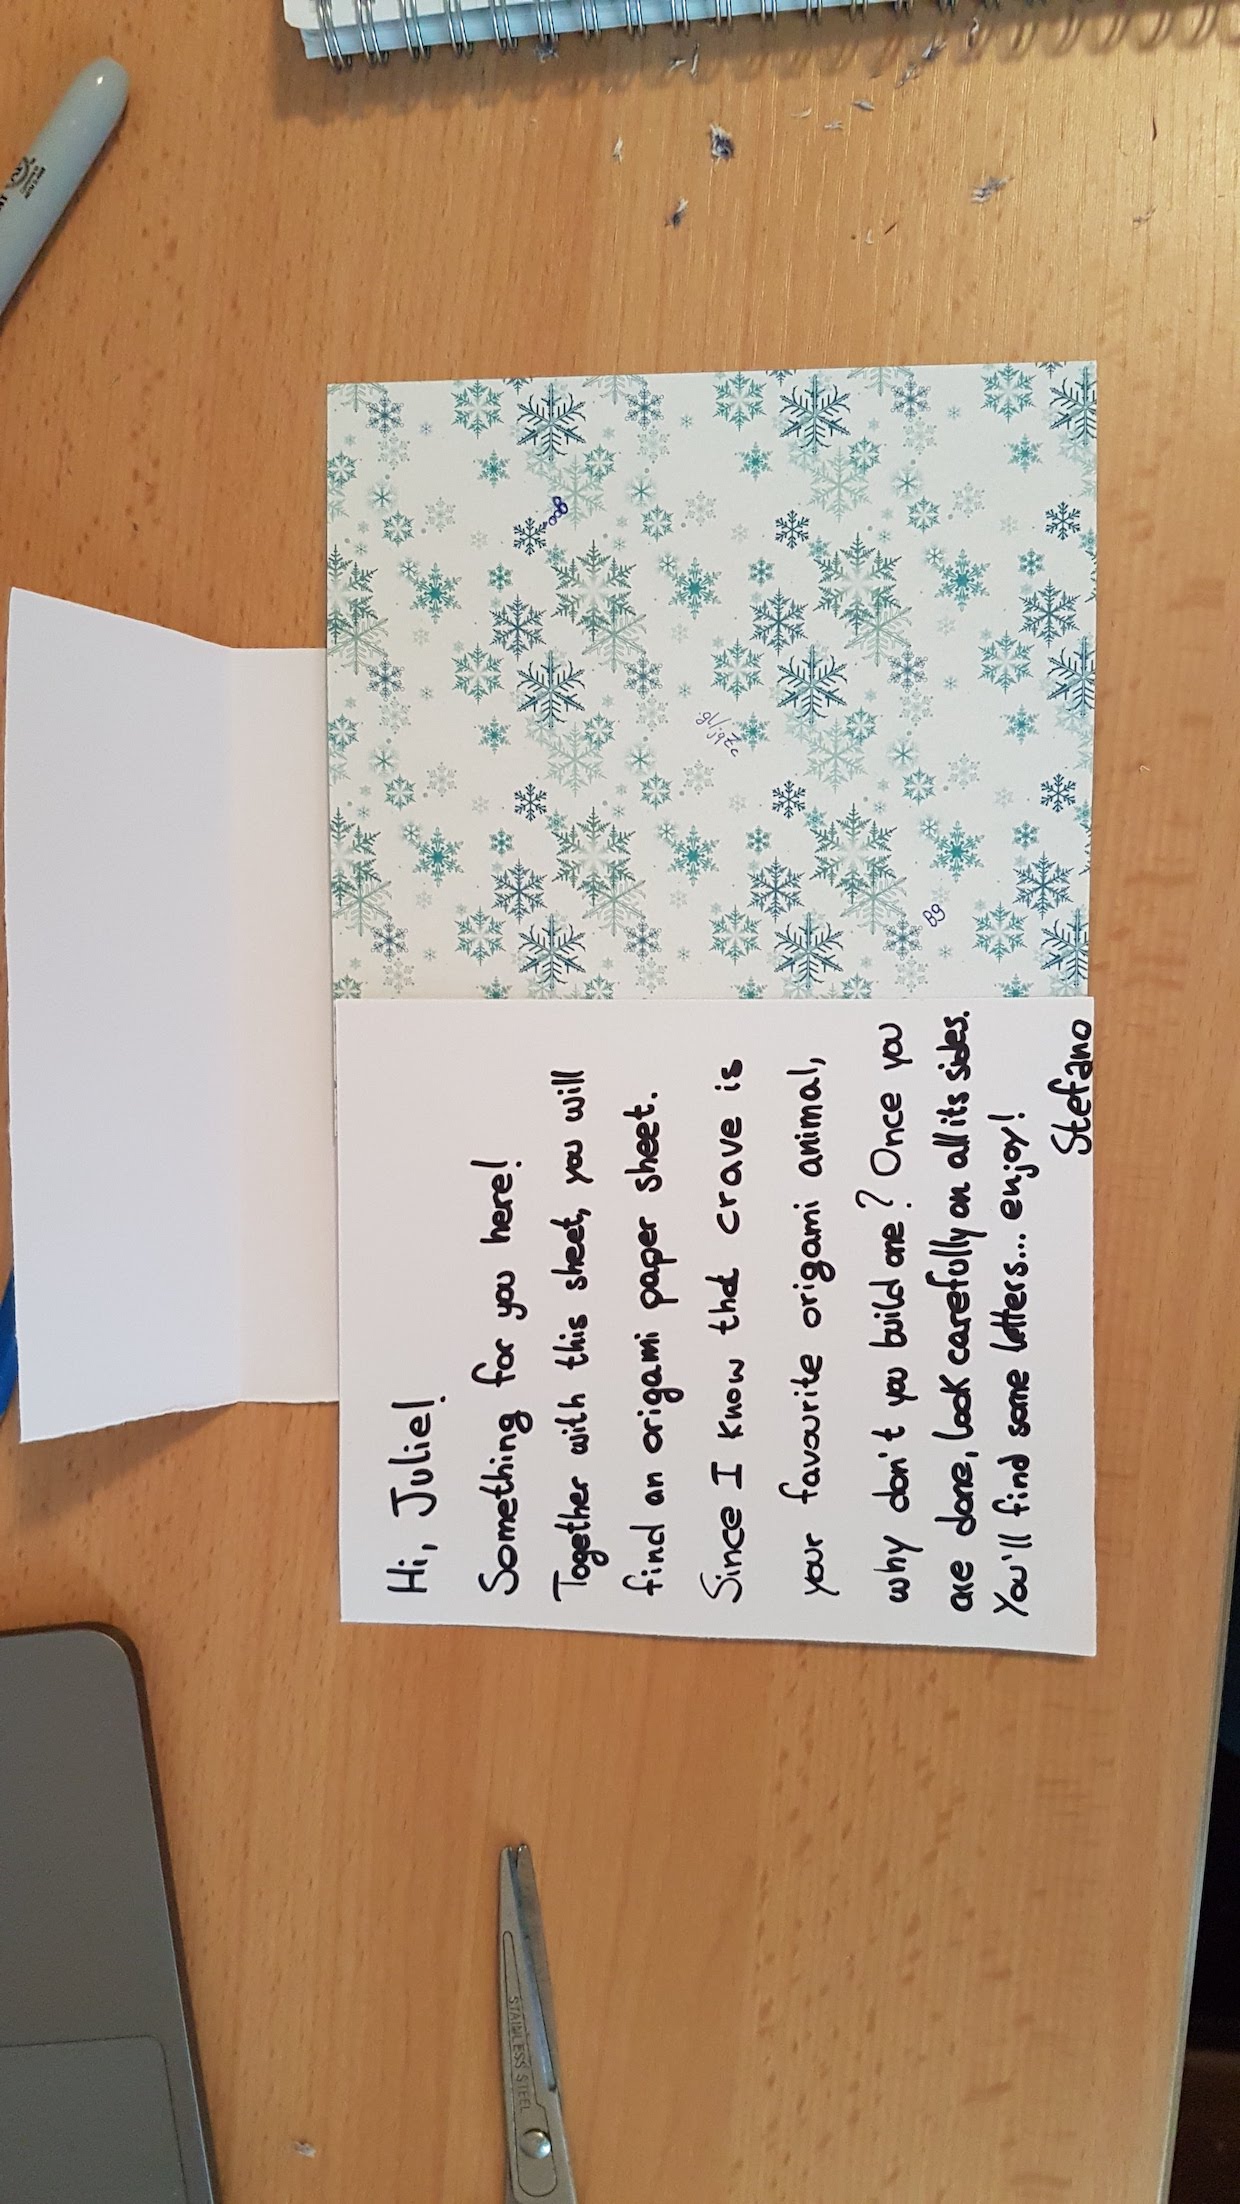 Hi, Julie!
Something for you here!
Together with this sheet, you will
find an origami paper sheet.
Since I know that crave is
your favourite origami animal,
why don't you build one? Once you
are done, look carefully on all its sides.
You'll find some letters... enjoy!
Stefano
STAINLESS STEEL